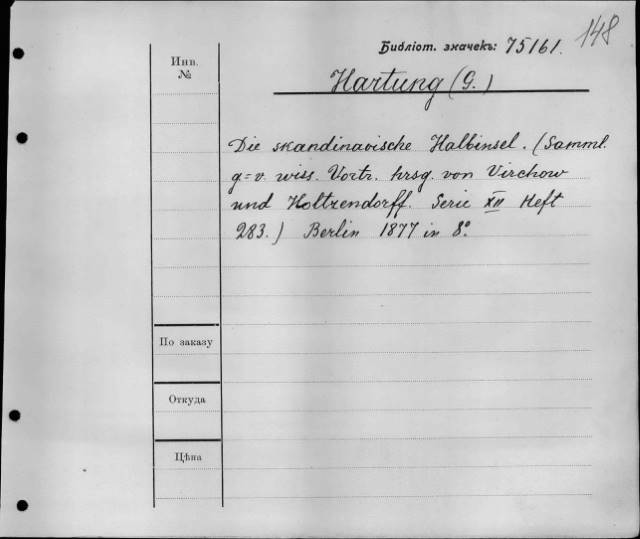 148
Библіот. значекъ: 75161.
Инв.
№
Hartung (G.)
Die skandinavische Halbinsel. (Samml.
g=v. wiss. Vortr. hrsg. von Virchow
und Holtzendorff. Serie XII Heft
283.) Berlin 1877 in 8º.
По заказу
Откуда
Цѣна